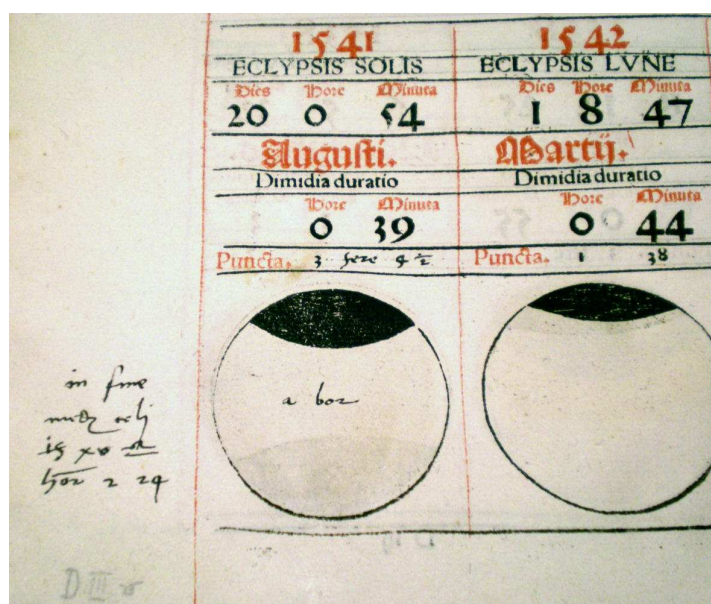 1541
ECLYPSIS SOLIS
Dies Hore Minuta
20 0 54
Augusti.
Dimidia duratio
Hore Minuta
0 39
Puncta. 3 fere 4 ½
a bor
1542
ECLYPSIS LVNE
Dies Hore Minuta
1 8 47
Martij.
Dimidia duratio
Hore Minuta
0 44
Puncta. 1 38
in fine
hor 2 24
D III